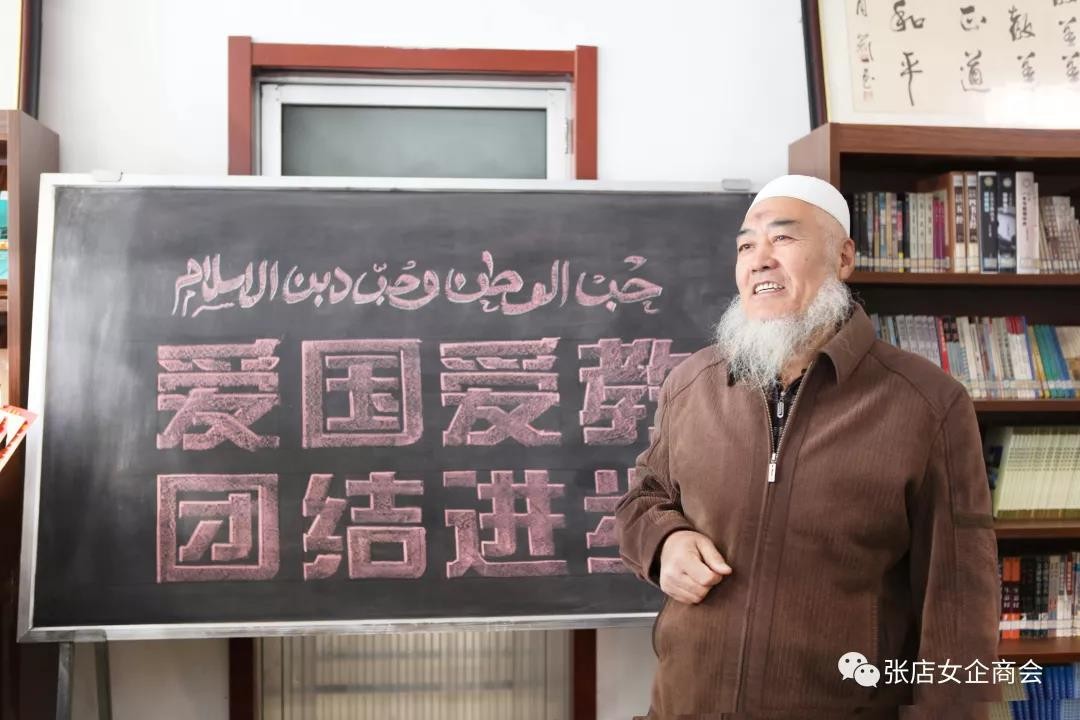 حُبّ الوطن وحُبّ دين الاسلام
爱国爱教
团结进
和平
正道
张店女企商会